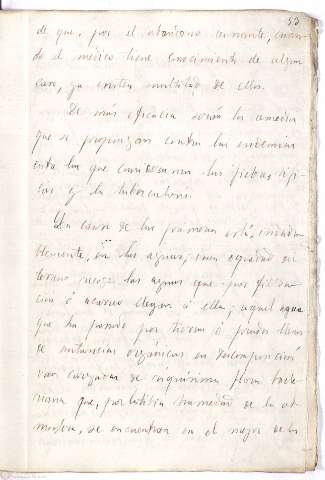 53
de que, por el abandono reinante, cuan-
do el médico tiene conocimiento de algún
caso, ya existen multitud de ellos.
De más eficacia serán los remedios
que se propongan contra las endemias
entre las que consideramos las fiebres tífi-
cas y la tuberculosis.
La causa de las primeras está, induda-
blemente, en las aguas;
las aguas que por filtra-
ción ó acarreo llegan á ella; aquel agua
que ha pasado por tierras ó prados llenos
de sustancias orgánicas en descomposición
van cargadas de riquísima flora bacte-
riana que, por la tibia humedad de la at-
mósfera, se encuentran en el mejor de los